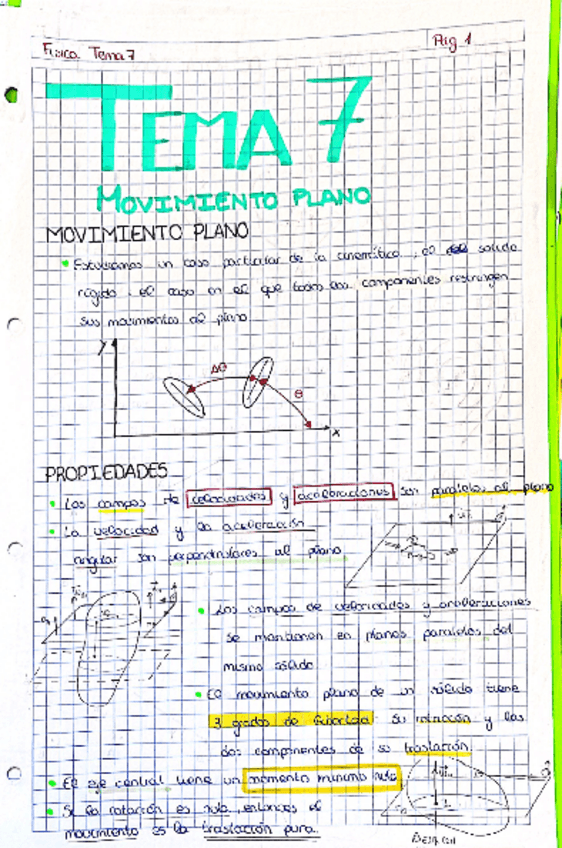 Física Tema 7
Pág 1
TEMA 7
MOVIMIENTO PLANO
MOVIMIENTO PLANO
Estudiamos un caso particular de la cinemática, el del solido
rígido, el caso en el que todos los componentes restringen
sus movimientos al plano.
y
Δθ
θ
x
PROPIEDADES
Los campos de velocidades y aceleraciones son paralelos al plano
La velocidad y la aceleración
angular son perpendiculares al plano
Los campos de velocidades y aceleraciones
se mantienen en planos paralelos del
mismo sólido
El movimiento plano de un sólido tiene
3 grados de libertad su rotación y las
dos componentes de su traslación
El eje central tiene un momento mínimo nulo
Si la rotación es nula, entonces el
movimiento es la traslación pura.